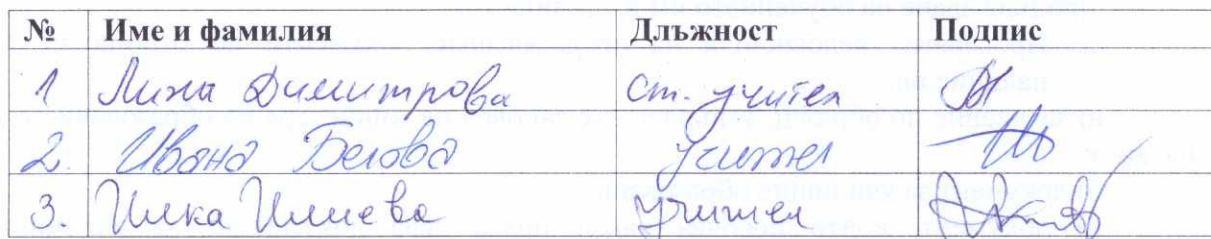 № Име и фамилия Длъжност Подпис
1 Лина Димитрова ст. учител
2. Ивана Белова учител
3. Илка Илиева учител